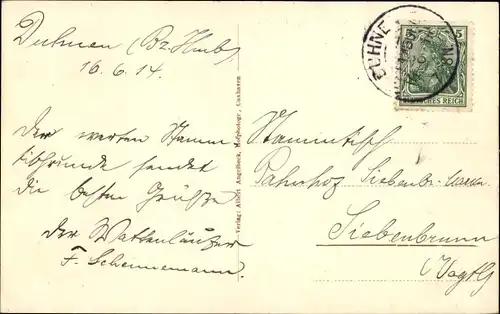 Duhnen (Bz. Hmb)
16.6.14.
Der werten Stamm
tischrunde sendet
die besten Grüße
Der Wattenläufer
F. Schennemann.
Verlag: Albert Angelbeck, Hofphotogr., Cuxhaven
DUHNE
5
DEUTSCHES REICH
Stammtisch
Bahnhof Siebenbr.
Siebenbrunn
Vogtl